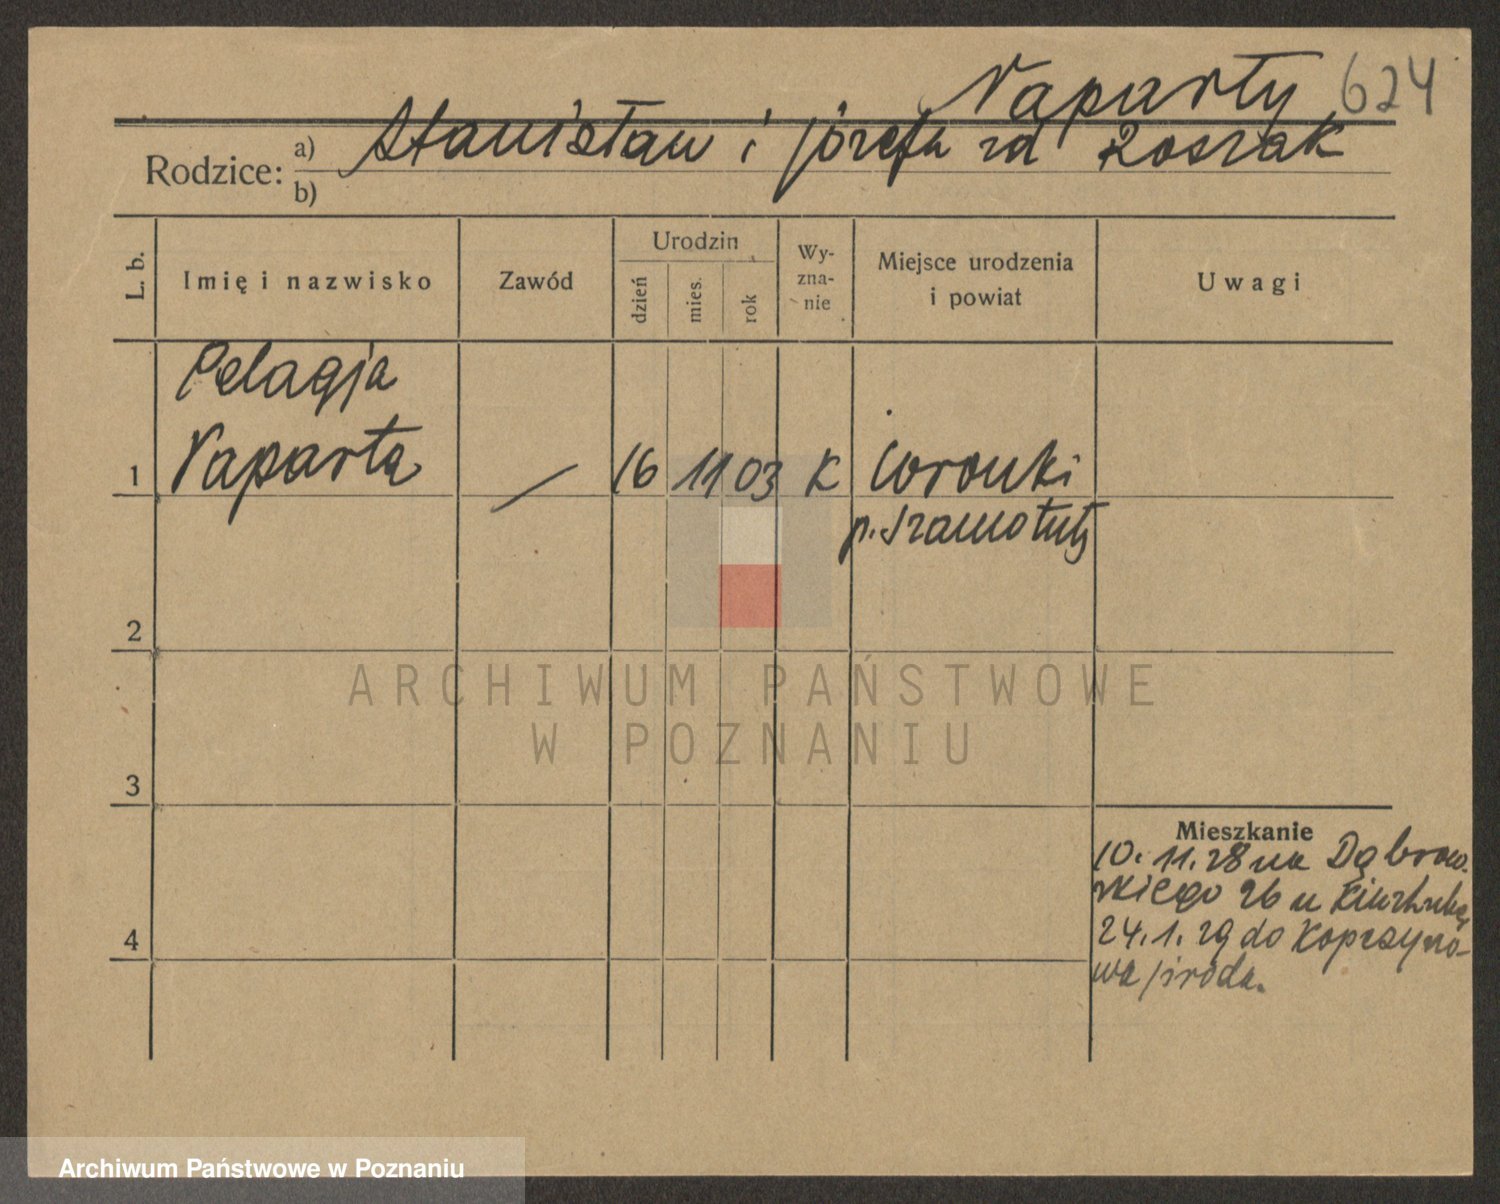 Naparty 624
Rodzice: a) Stanisław i Józefa zd Roszak
b)
L. b.
Imię i nazwisko
Zawód
Urodzin
dzień
mies.
rok
Wy-
zna-
nie
Miejsce urodzenia
i powiat
Uwagi
Pelagja
1 Naparta — 16 11 03 K Wronki
p. Szamotuły
2
3
4
Mieszkanie
10. 11. 28 na Dąbrow-
skiego 26 u
24. 1. 29 do
ARCHIWUM PAŃSTWOWE
W POZNANIU
Archiwum Państwowe w Poznaniu